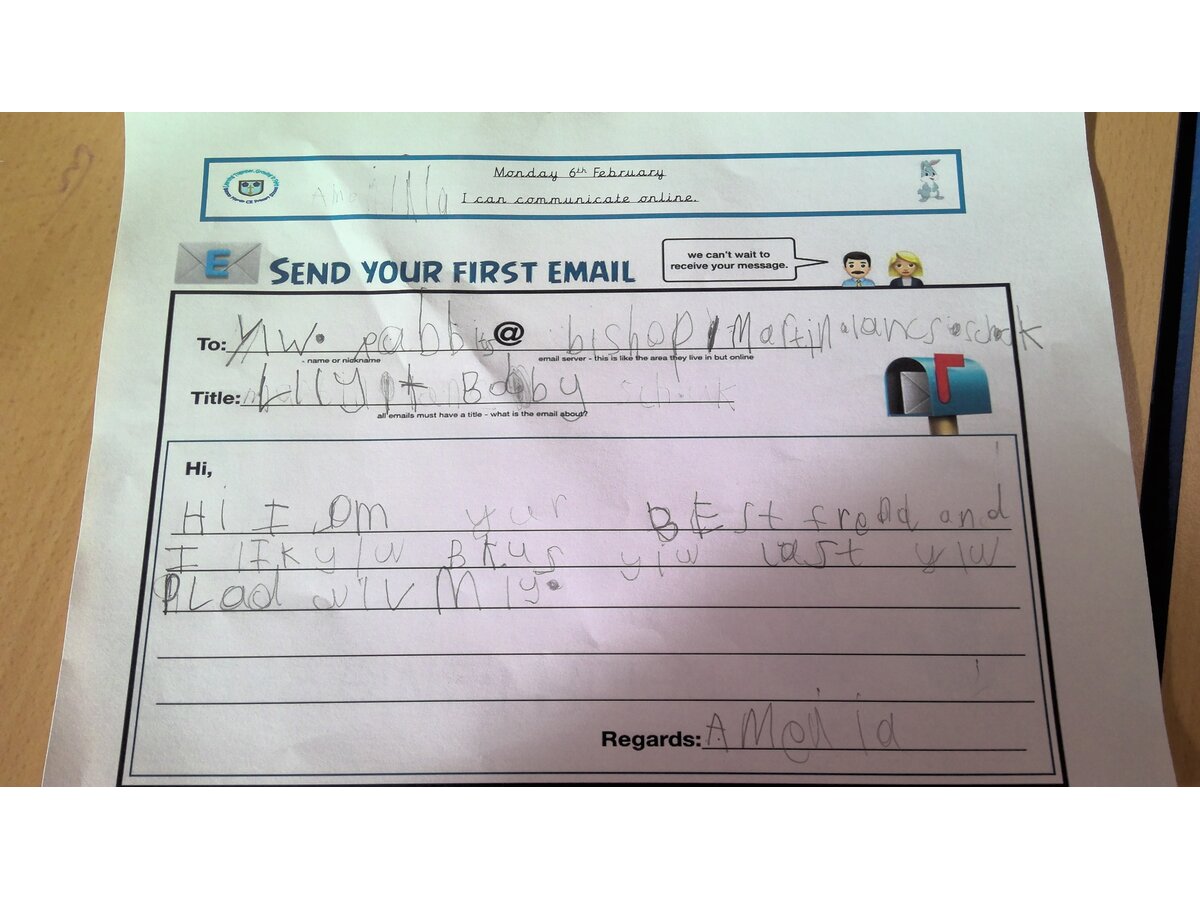 Monday 6th February
I can communicate online.
E
SEND YOUR FIRST EMAIL
we can't wait to
receive your message.
To: yiw. rabbits@ bishop Martin.lancs.
- name or nickname
email server - this is like the area they live in but online
Title: Lilly Bobby
all emails must have a title - what is the email about?
Hi,
Hi I am yur BEst freад and
I lIK yiw BKus yiw last yiw
PLad wiv Miy.
Regards: AMeilia